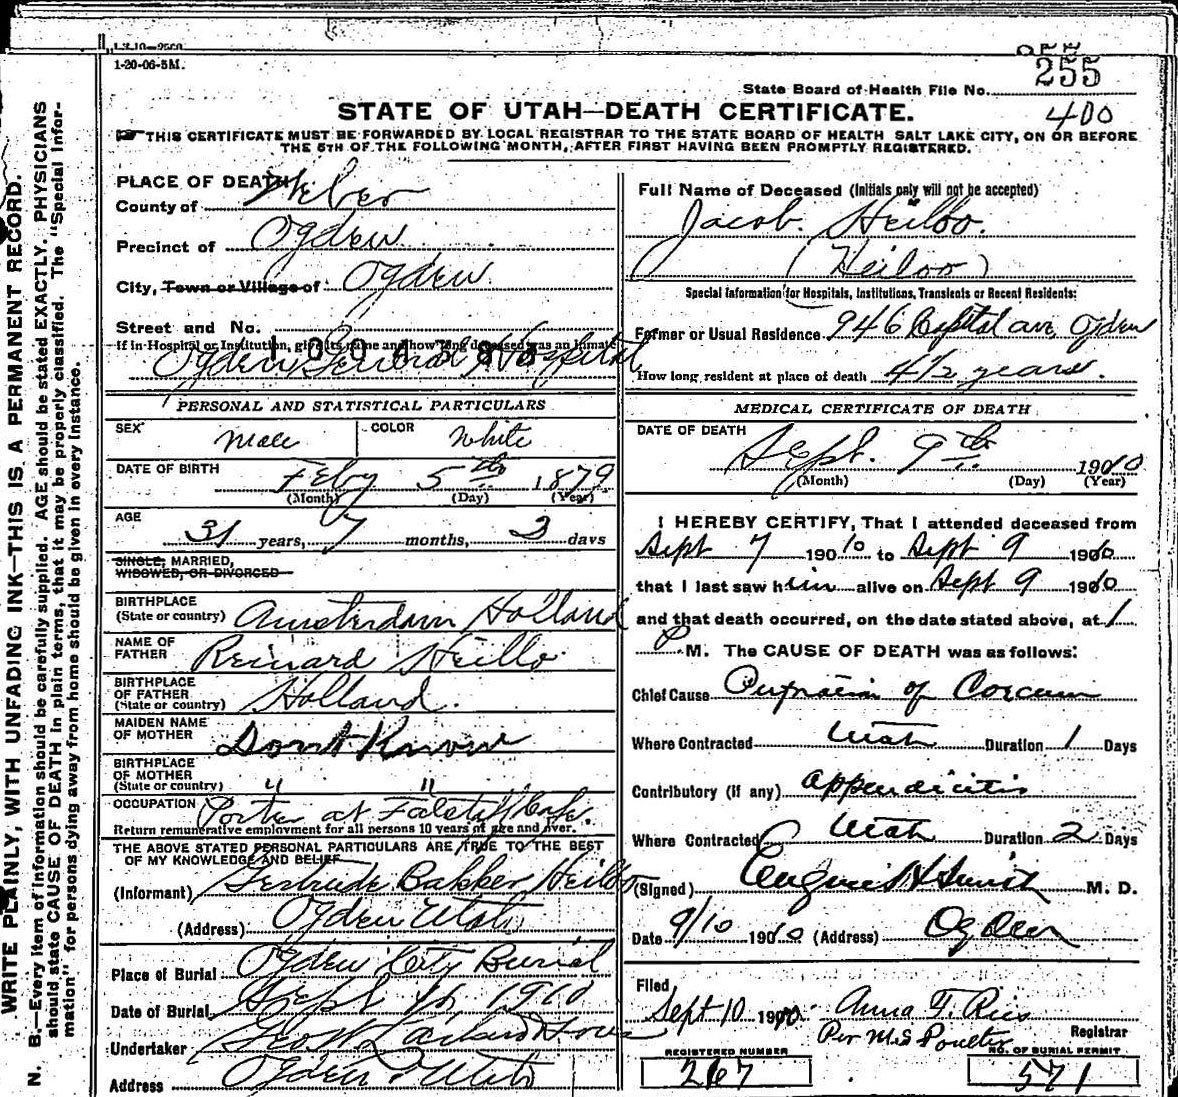 1-20-06-5M.
State Board of Health File No. 255
400
STATE OF UTAH—DEATH CERTIFICATE.
THIS CERTIFICATE MUST BE FORWARDED BY LOCAL REGISTRAR TO THE STATE BOARD OF HEALTH SALT LAKE CITY, ON OR BEFORE
THE 5TH OF THE FOLLOWING MONTH, AFTER FIRST HAVING BEEN PROMPTLY REGISTERED.
WRITE PLAINLY, WITH UNFADING INK—THIS IS A PERMANENT RECORD.
N. B.—Every item of information should be carefully supplied. AGE should be stated EXACTLY. PHYSICIANS
should state CAUSE OF DEATH in plain terms, that it may be properly classified. The "Special Infor-
mation" for persons dying away from home should be given in every instance.
PLACE OF DEATH
County of Weber
Precinct of Ogden
City, Town or Village of Ogden
Street and No.
If in Hospital or Institution, give its name and how long deceased was an inmate
Ogden General Hospital
PERSONAL AND STATISTICAL PARTICULARS
SEX Male COLOR White
DATE OF BIRTH Feby 5th 1879
(Month) (Day) (Year)
AGE 31 years, 7 months, days
SINGLE, MARRIED,
WIDOWED, OR DIVORCED
BIRTHPLACE
(State or country) Amsterdam Holland
NAME OF
FATHER Reinard Heilbo
BIRTHPLACE
OF FATHER
(State or country) Holland.
MAIDEN NAME
OF MOTHER Dont Know
BIRTHPLACE
OF MOTHER
(State or country) " "
OCCUPATION Porter at Falstaff Cafe.
Return remunerative employment for all persons 10 years of age and over.
THE ABOVE STATED PERSONAL PARTICULARS ARE TRUE TO THE BEST
OF MY KNOWLEDGE AND BELIEF
(Informant) Gertrude Bakker Heilbo
(Address) Ogden Utah
Place of Burial Ogden City Burial
Date of Burial Sept 1910
Undertaker
Address Ogden Utah
Full Name of Deceased (Initials only will not be accepted)
Jacob. Heilbo.
(Heiloo)
Special information for Hospitals, Institutions, Transients or Recent Residents:
Former or Usual Residence 946 Capital ave, Ogden
How long resident at place of death 4 1/2 years.
MEDICAL CERTIFICATE OF DEATH
DATE OF DEATH
Sept. 9th 1910
(Month) (Day) (Year)
I HEREBY CERTIFY, That I attended deceased from
Sept 7 1910 to Sept 9 1910
that I last saw him alive on Sept 9 1910
and that death occurred, on the date stated above, at 1
P. M. The CAUSE OF DEATH was as follows:
Chief Cause of
Where Contracted Utah Duration 1 Days
Contributory (if any) appendicitis
Where Contracted Utah Duration 2 Days
(Signed) Smith M. D.
Date 9/10 1910 (Address) Ogden
Filed
Sept 10 1910 Anna T. Ries
Per M.S Poulter Registrar
REGISTERED NUMBER
267
NO. OF BURIAL PERMIT
571